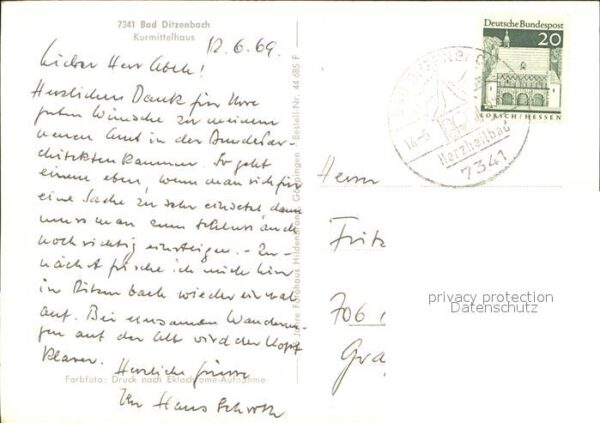 7341 Bad Ditzenbach
Kurmittelhaus
12.6.69.
Lieber Herr Abele!
Herzlichen Dank für Ihre
guten Wünsche zu meinem
neuen Amt in der Bundesar-
chitektenkammer. So geht
einem eben, wenn man sich für
eine Sache zu sehr einsetzt, dann
muss man zum Schluss auch
noch richtig einsteigen. - Zu-
nächst frische ich mich hier
in Ditzenbach wieder einmal
auf. Bei einsamen Wanderun-
gen auf der Alb wird der Kopf
klarer.
Herzliche Grüsse
Ihr Hans
Farbfoto: Druck nach Ektachrome-Aufnahme
Fotohaus Hildenbrand, Göppingen Bestell-Nr. 44 685 F
Deutsche Bundespost
20
LORSCH/HESSEN
BAD DITZENBACH
Herzheilbad
7341
Herrn
Fritz
706
privacy protection
Datenschutz
Gra